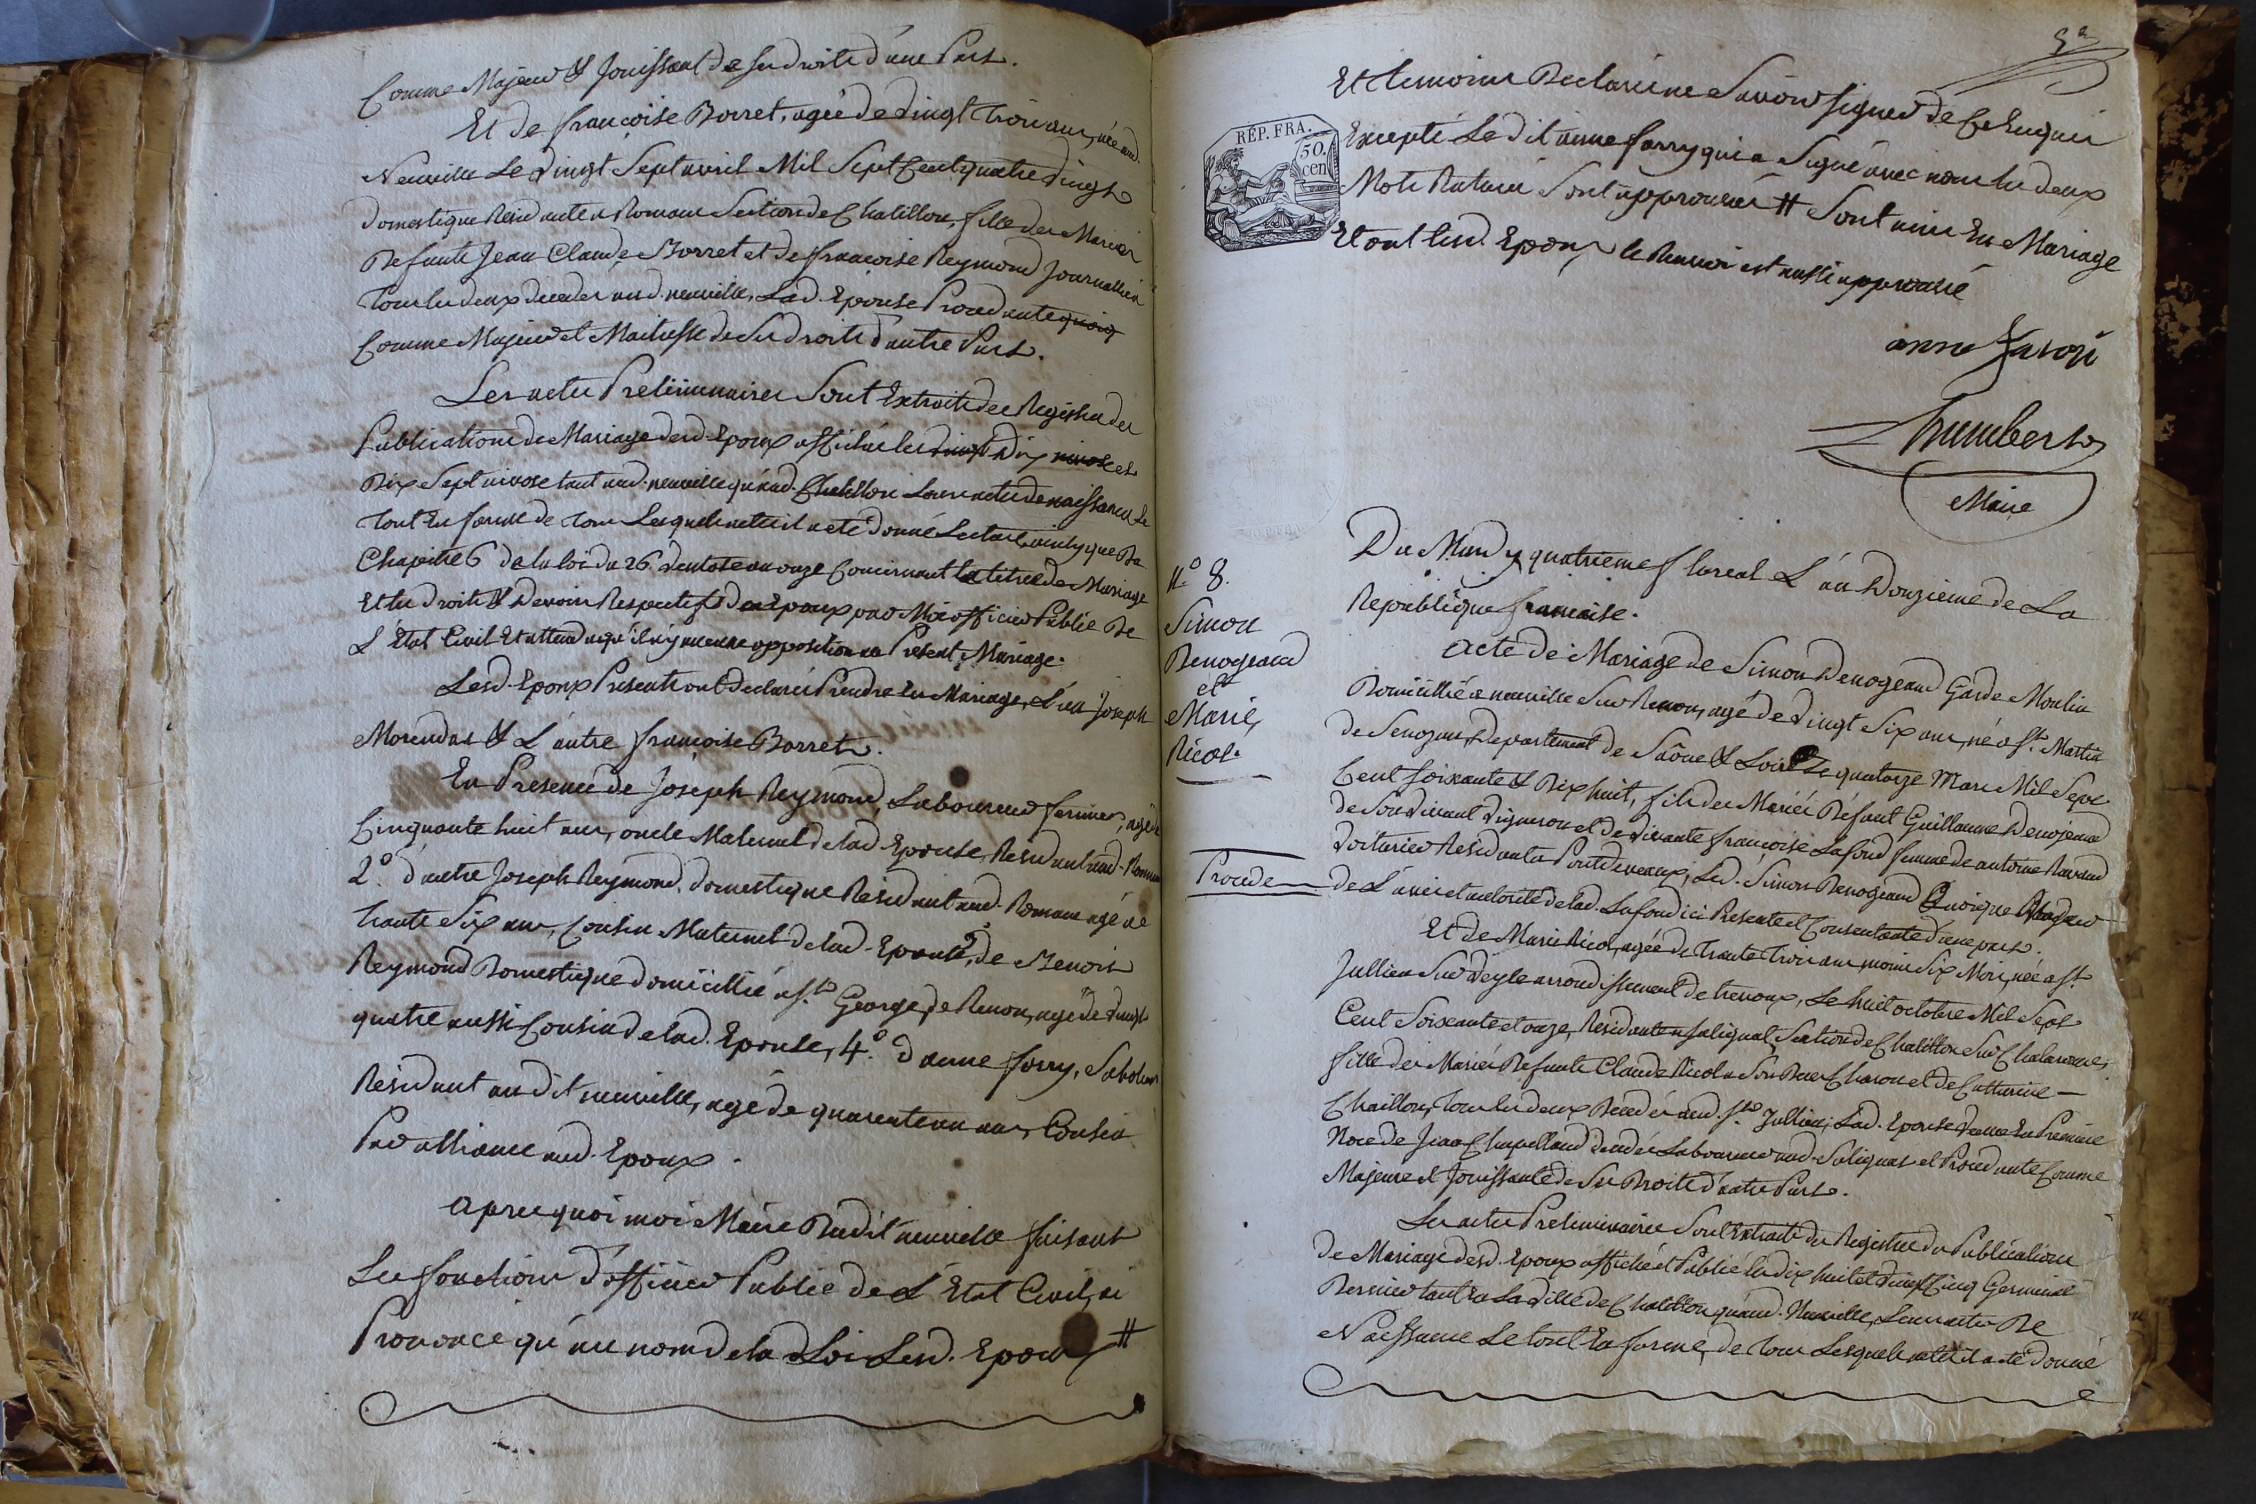 Comme Majeur & Jouissant de ses droits d'une Part.
Et de françoise Borret, agée de vingt trois ans, née aud.
Neuville Le vingt Sept avril Mil Sept Cent quatre vingt
domestique Residante a Romans Section de Chatillon, fille des Mariés
Defunts Jean Claude Borret et de françoise Reymond Journalliers
tous les deux decedes aud. neuville, Lad. Epouse Procedante
Comme Majeure et Maitresse de Ses droits d'autre Part.
Les actes Preliminaires Sont Extraits des Registres des
Publications de Mariage desd. Epoux affichés les Dix et
Dix Sept nivose tant aud. neuville qu'aud. Chatillon Leurs actes de naissance Le
tout En forme de tous Lesquels actes il a eté donné Lecture, ainsy que Du
Chapitre 6 de la loi du 26 ventose an onze Concernant le titre de Mariage
Et les droits & Devoirs Respectifs des Epoux par Moi officier Public De
L'Etat Civil Et attendu qu'il n'y a aucune opposition au Present Mariage.
Lesd. Epoux Presents ont declarés Prendre En Mariage, L'un Joseph
Morendas & L'autre françoise Borret.
En Presence de Joseph Reymond, Laboureur fermier, agé de
Cinquante huit ans, oncle Maternel de lad. Epouse, Residant aud. Romans
2º. d'autre Joseph Reymond, domestique Residant aud. Romans agé de
trante Six ans, Cousin Maternel de lad. Epouse, 3º de Benoit
Reymond Domestique domicillié a St. George de Renon, agé de vingt
quatre aussi Cousin de lad. Epouse, 4º. d'anne forry, Sabotier
Residant au dit neuville, agé de quarente un ans, Cousin
Par alliance aud. Epoux.
apres quoi moi Maire Dudit neuville faisant
Les fonctions d'officier Public de L'Etat Civil, ai
Prononcé qu'au nom de la Loi Lesd. Epoux #
Et temoins Declarés ne Savoir signer de Ce Enquis
Excepté Le dit anne forry qui a Signé avec nous les deux
Mots Raturés Sont approuvés # Sont unis En Mariage
Et ont lesd. Epoux le Renvoi est aussi approuvé
REP. FRA.
50.
cen
humbert
Maire
Du Mardy quatrieme floreal L'an Douzieme de La
Republique francaise.
Nº 8.
Simon
Denogeand
et
Marie
Nicol.
acte de Mariage de Simon Denogeand Garde Moulin
Domicillié a neuville Sur Renon, agé de vingt Six ans, né a St. Martin
de Senozan, Departement de Saône & Loire Le quatorze Mars Mil Sept
Cent soixante & Dix huit, fils des Mariés Defunt Guillaume Denojeand
de Son vivant vigneron et de vivante françoise Lafond femme de antoine Ravaud
voiturier Residant a Pontdeveaux, Led. Simon Denogeand Quoique Majeur
Procede
de L'avis et autorité de lad. Lafond ici Presente et Consentante d'une part.
Et de Marie Nicol, agée de trante trois ans moins Six Mois, née a St.
Jullien Sur Veyle arrondissement de trevoux, Le huit octobre Mil Sept
Cent Soixante et onze, Residante a Salignat Section de Chatillon Sur Chalaronne,
fille des Mariés Defunts Claude Nicol et de Catherine
Chaillon, tous les deux Decedés aud. St. Jullien, Lad. Epouse veuve En Premiere
Noce de Jean Chapelland decedé Laboureur aud. Salignat et Procedante Comme
Majeure et Jouissante de Ses Droits d'autre Part.
Les actes Preliminaires Sont Extraits du Registre des Publications
de Mariage desd. Epoux affichés et Publiés les dix huit et vingt Cinq Germinal
Dernier tant En La ville de Chatillon qu'aud. Neuville, Leurs actes De
Naissance Le tout En forme, de tous Lesquels actes il a eté donné